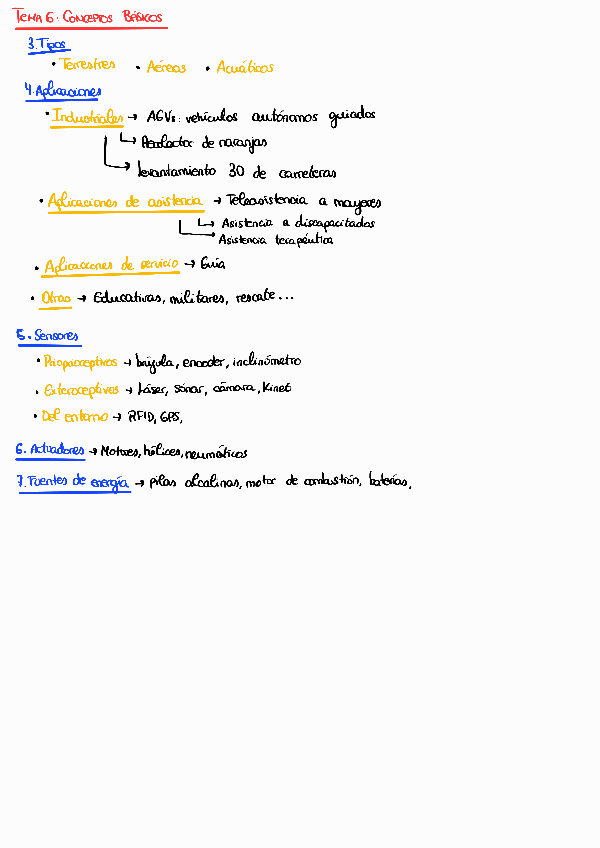 TEMA 6. CONCEPTOS BÁSICOS
3. Tipos
• Terrestres • Aéreas • Acuáticos
4. Aplicaciones
• Industriales → AGVs: vehículos autónomos guiados
↳ Recolector de naranjas
↳ levantamiento 3D de carreteras
• Aplicaciones de asistencia → Teleasistencia a mayores
↳ Asistencia a discapacitados
↳ Asistencia terapéutica
• Aplicaciones de servicio → Guia
• Otras → Educativas, militares, rescate...
5. Sensores
• Propioceptivos → brújula, encoder, inclinómetro
• Exteroceptivos → Láser, sónar, cámara, Kinet
• Del entorno → RFID, GPS,
6. Actuadores → Motores, hélices, neumáticos
7. Fuentes de energía → pilas alcalinas, motor de combustión, baterías,